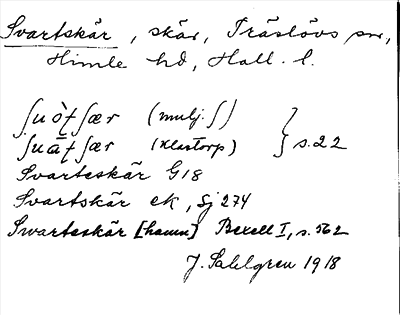 Svartskär, skär, Träslövs sn,
Himle hd, Hall. l.
(mulj. ʃ)
(Klastorp) } s. 22
Svarteskär G18
Svartskär ek, Sj 274
Swarteskär [hamn] Bexell I, s. 562
J. Sahlgren 1918